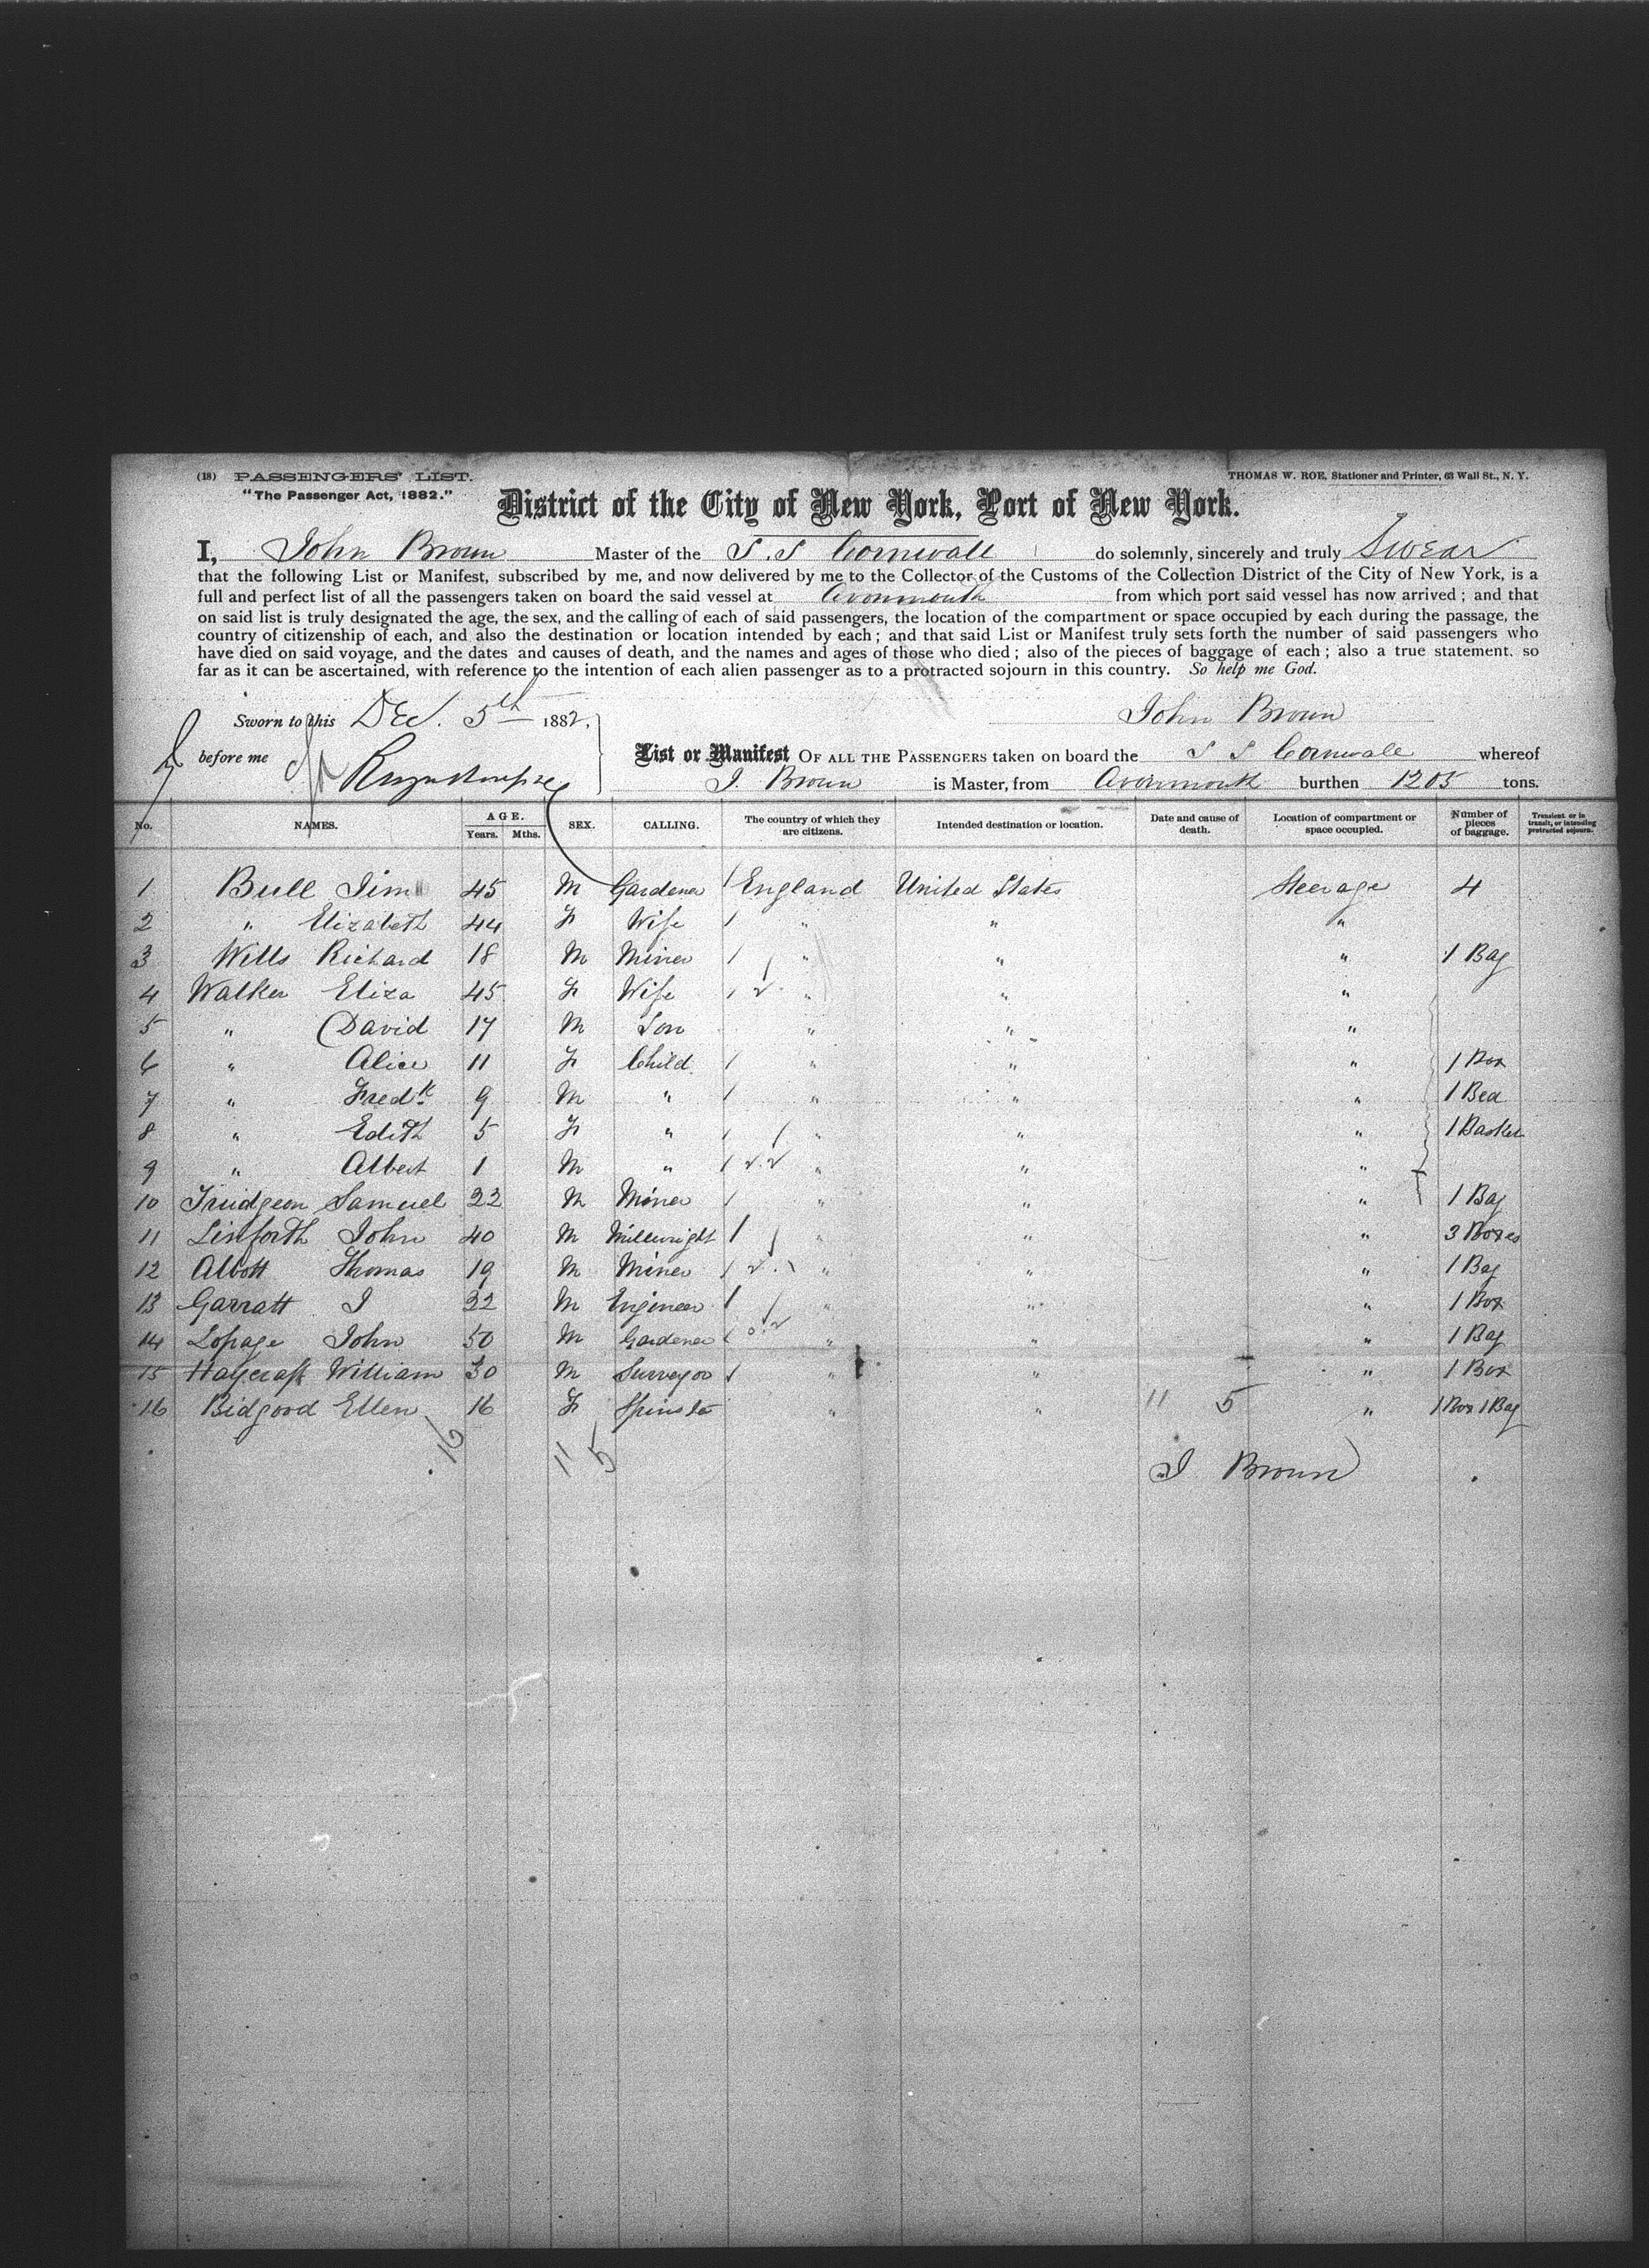 (18) PASSENGERS' LIST.
THOMAS W. ROE, Stationer and Printer, 63 Wall St., N. Y.
"The Passenger Act, 1882."
District of the City of New York, Port of New York.
I, John Brown Master of the S. S Cornwall do solemnly, sincerely and truly Swear
that the following List or Manifest, subscribed by me, and now delivered by me to the Collector of the Customs of the Collection District of the City of New York, is a
full and perfect list of all the passengers taken on board the said vessel at Avonmouth from which port said vessel has now arrived; and that
on said list is truly designated the age, the sex, and the calling of each of said passengers, the location of the compartment or space occupied by each during the passage, the
country of citizenship of each, and also the destination or location intended by each; and that said List or Manifest truly sets forth the number of said passengers who
have died on said voyage, and the dates and causes of death, and the names and ages of those who died; also of the pieces of baggage of each; also a true statement, so
far as it can be ascertained, with reference to the intention of each alien passenger as to a protracted sojourn in this country. So help me God.
Sworn to this Dec. 5th 1882,
John Brown
before me
List or Manifest OF ALL THE PASSENGERS taken on board the S S Cornwall whereof
J. Brown is Master, from Avonmouth burthen 1205 tons.
No. NAMES. AGE. Years. Mths. SEX. CALLING. The country of which they are citizens. Intended destination or location. Date and cause of death. Location of compartment or space occupied. Number of pieces of baggage. Transient or in transit, or intending protracted sojourn.
1 Bull Jim 45 M Gardener 1 England United States Steerage 4
2 " Elizabeth 44 F Wife 1 " " "
3 Wills Richard 18 M Miner 1 " " " 1 Bag
4 Walker Eliza 45 F Wife 1 2 " " "
5 " David 17 M Son " " "
6 " Alice 11 F Child 1 " " " 1 Box
7 " Fredk 9 M " 1 " " " 1 Bed
8 " Edith 5 F " 1 " " " 1 Basket
9 " Albert 1 M " 1 2.2 " " "
10 Trudgeon Samuel 22 M Miner 1 " " " 1 Bag
11 Linforth John 40 M Millwright 1 " " " 3 Boxes
12 Abbott Thomas 19 M Miner 1 2 " " " 1 Bag
13 Garratt J 32 M Engineer 1 " " " 1 Box
14 Lopage John 50 M Gardener " " " 1 Bag
15 Haycraft William 30 M Surveyor 1 " " " 1 Box
16 Bidgood Ellen 16 F Spinster " " 11 5 " 1 Box 1 Bag
16 11 5
J Brown